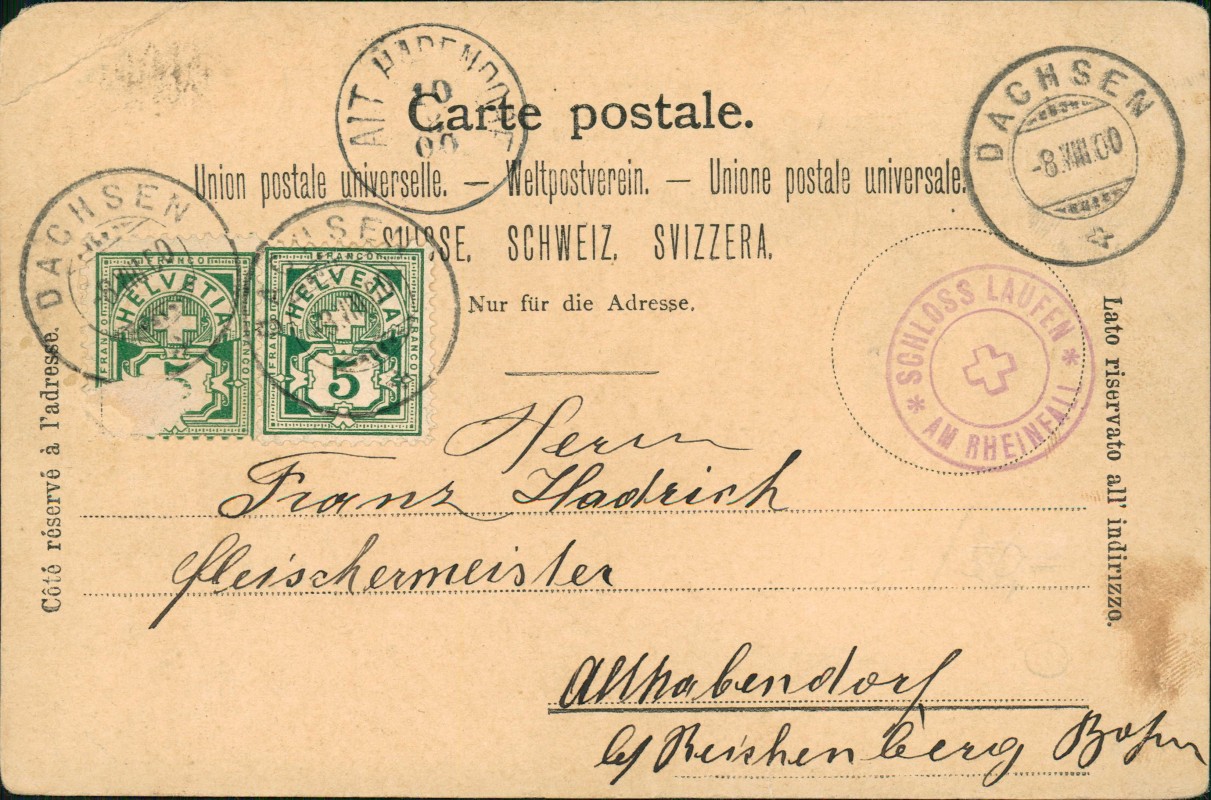 ALT HABENDORF
10
00
Carte postale.
DACHSEN
-8.VIII.00
Union postale universelle. — Weltpostverein. — Unione postale universale.
SUISSE, SCHWEIZ, SVIZZERA.
Nur für die Adresse.
DACHSEN
DACHSEN
FRANCO
HELVETIA
FRANCO
FRANCO
5
FRANCO
HELVETIA
FRANCO
FRANCO
5
SCHLOSS LAUFEN
* AM RHEINFALL *
Côté réservé à l'adresse.
Lato riservato all' indirizzo.
Herrn
Franz Hadrich
Fleischermeister
Althabendorf
b/ Reichenberg Böhm
50-